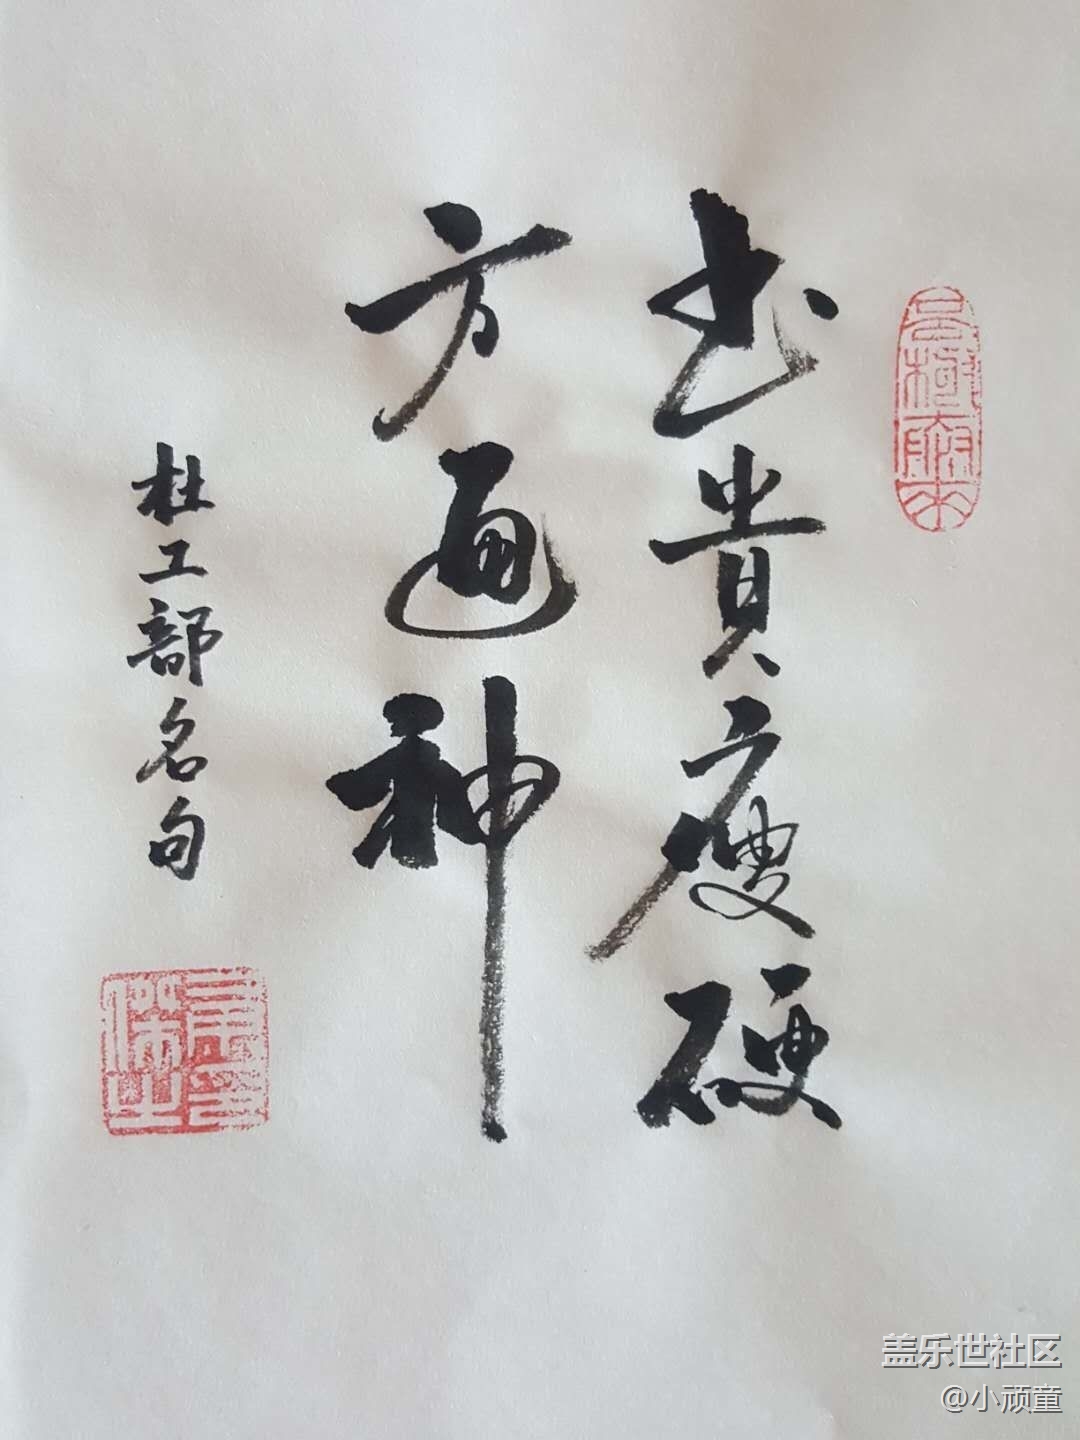 书貴瘦硬
方通神
杜工部名句
盖乐世社区
@小顽童